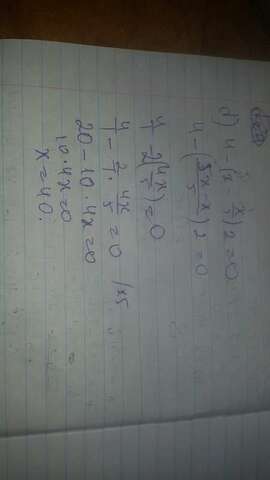 d) 4-(x-x/5)2=0
4-(5x-x/5)2=0
4/1-2(4x/5)=0
4/1-2/1·4x/5=0 /x5
20-10·4x=0
10·4x=0
x=40.